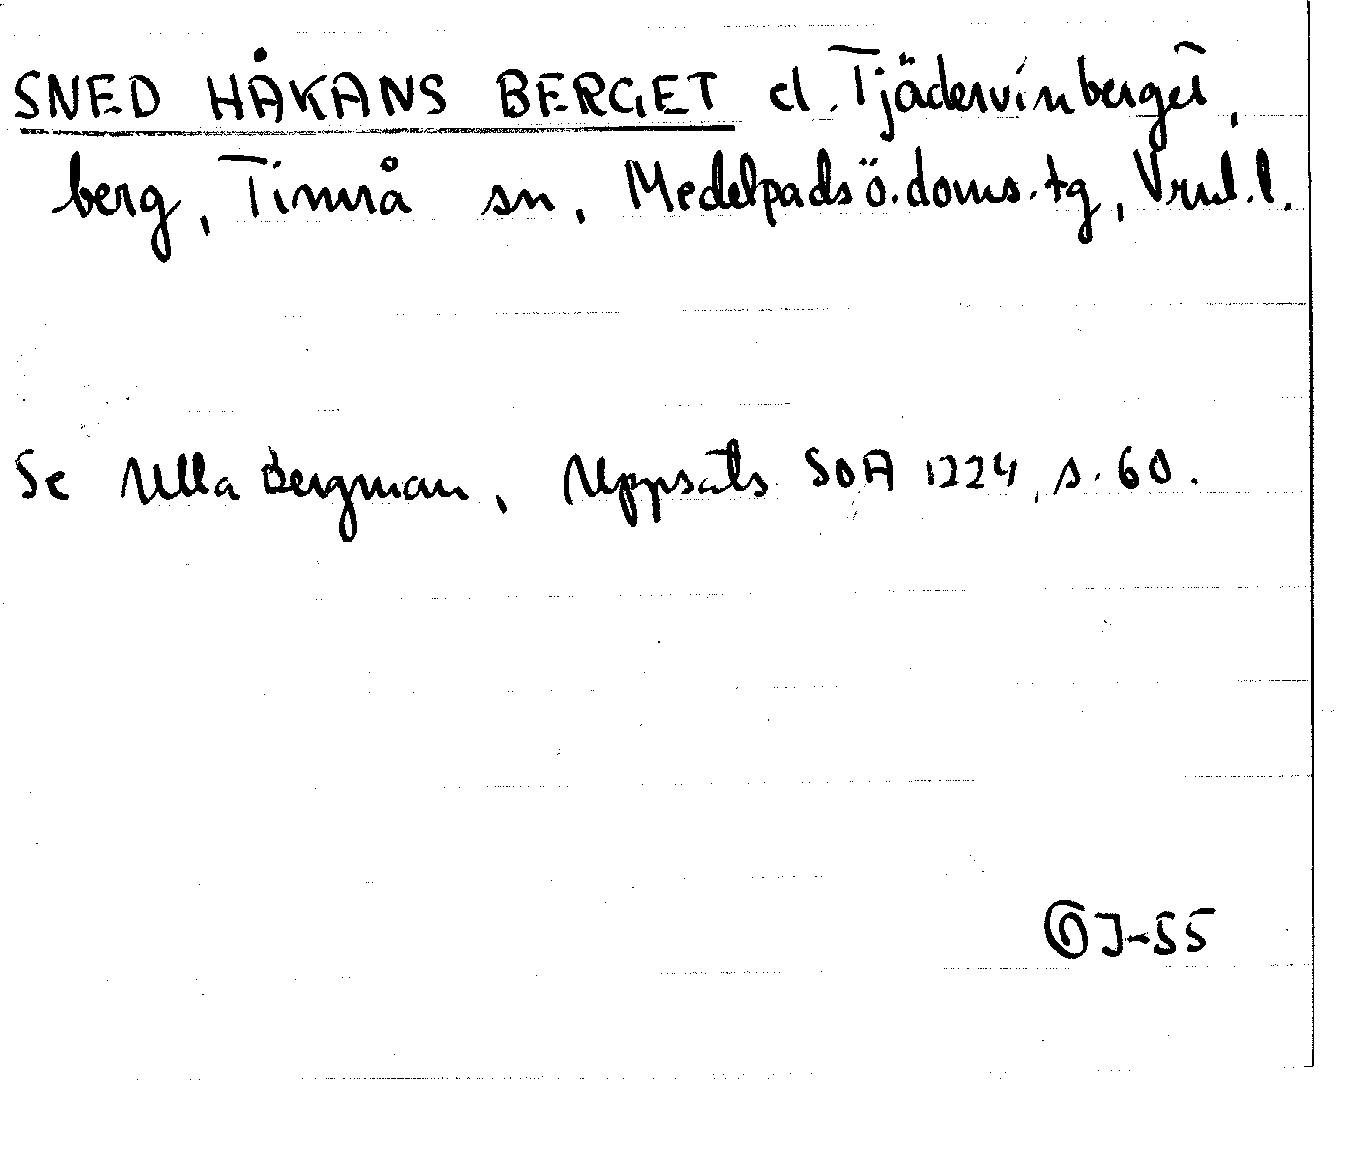 SNED HÅKANS BERGET el. Tjädervinberget,
berg, Timrå sn, Medelpads ö.doms.tg, Vrnl.l.
Se Ulla Bergman, Uppsats SOA 1224, s. 60.
GJ-55